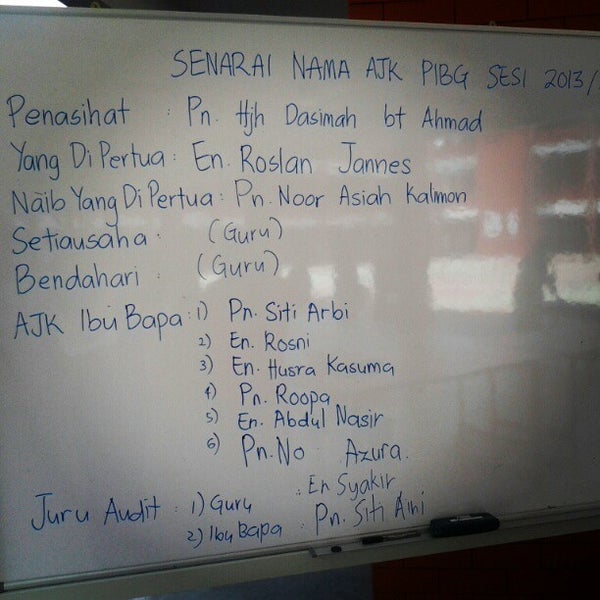 SENARAI NAMA AJK PIBG SESI 2013/
Penasihat : Pn. Hjh Dasimah bt Ahmad
Yang Di Pertua : En. Roslan Jannes
Naib Yang Di Pertua : Pn. Noor Asiah Kalimon
Setiausaha : (Guru)
Bendahari : (Guru)
AJK Ibu Bapa : 1) Pn. Siti Arbi
2) En. Rosni
3) En. Husra Kasuma
4) Pn. Roopa
5) En. Abdul Nasir
6) Pn. No Azura.
Juru Audit : 1) Guru : En Syakir
2) Ibu Bapa : Pn. Siti Aini